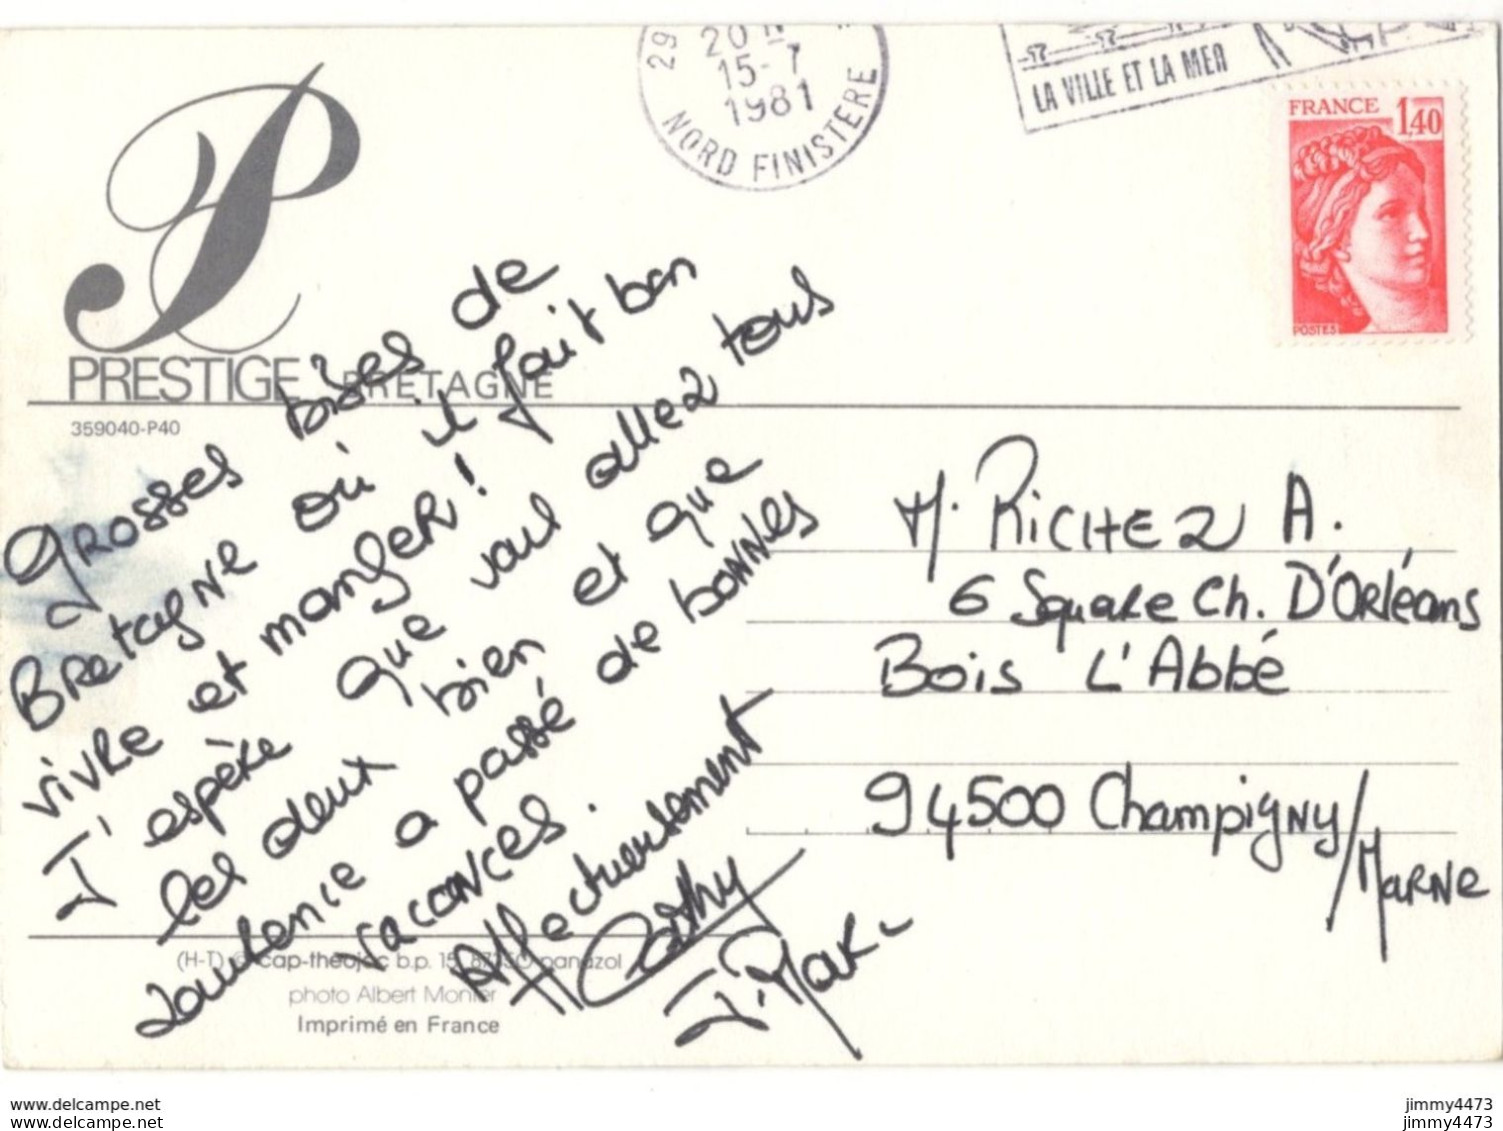 29
20 H
15-7
1981
NORD FINISTERE
LA VILLE ET LA MER
FRANCE 1,40
POSTES
PRESTIGE BRETAGNE
359040-P40
Grosses bises de
Bretagne où il fait bon
vivre et manger!
J'espère que vous allez tous
les deux bien et que
Laurence a passé de bonnes
vacances.
Affectueusement
Cathy
J. Mark
M. RICHEZ A.
6 Square Ch. D'Orléans
Bois L'Abbé
94500 Champigny/
MARNE
(H-T) © cap-théojac b.p. 15, panazol
photo Albert Monier
Imprimé en France
www.delcampe.net
www.delcampe.net
jimmy4473
jimmy4473